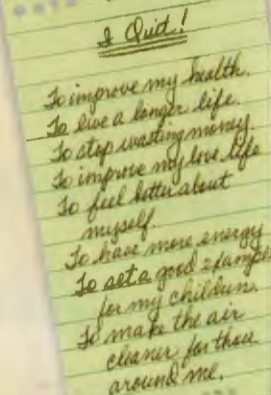 I Quit!
To improve my health.
To live a longer life.
To stop wasting money.
To improve my love life
To feel better about
myself.
To have more energy
To set a good example
for my children.
To make the air
cleaner for those
around me.